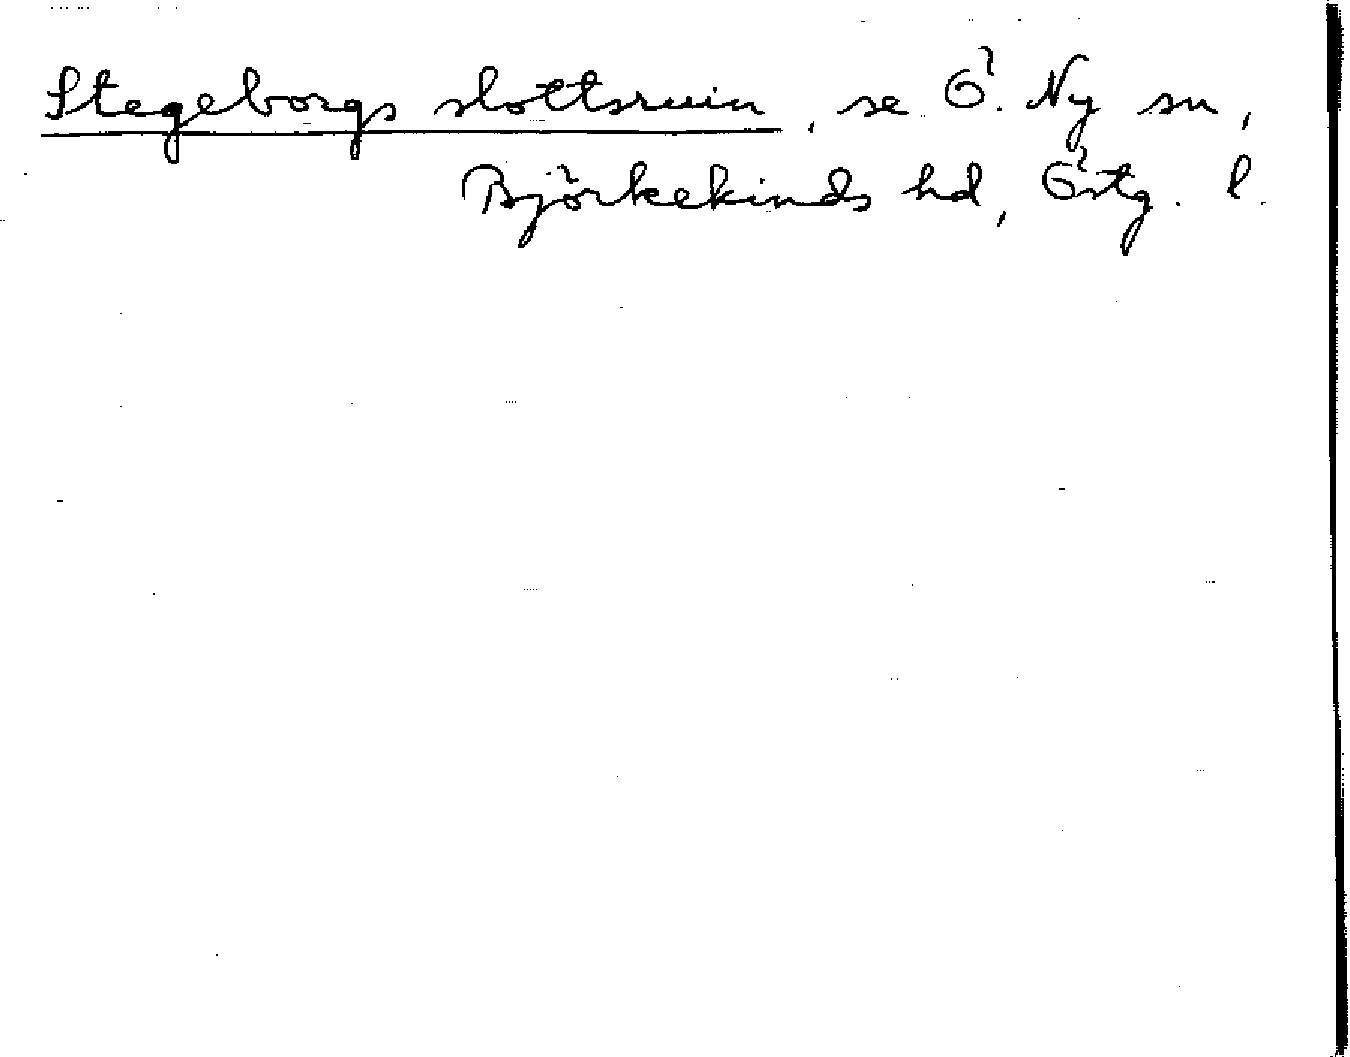 Stegeborgs slottsruin, se Ö. Ny sn,
Björkekinds hd, Östg. l.